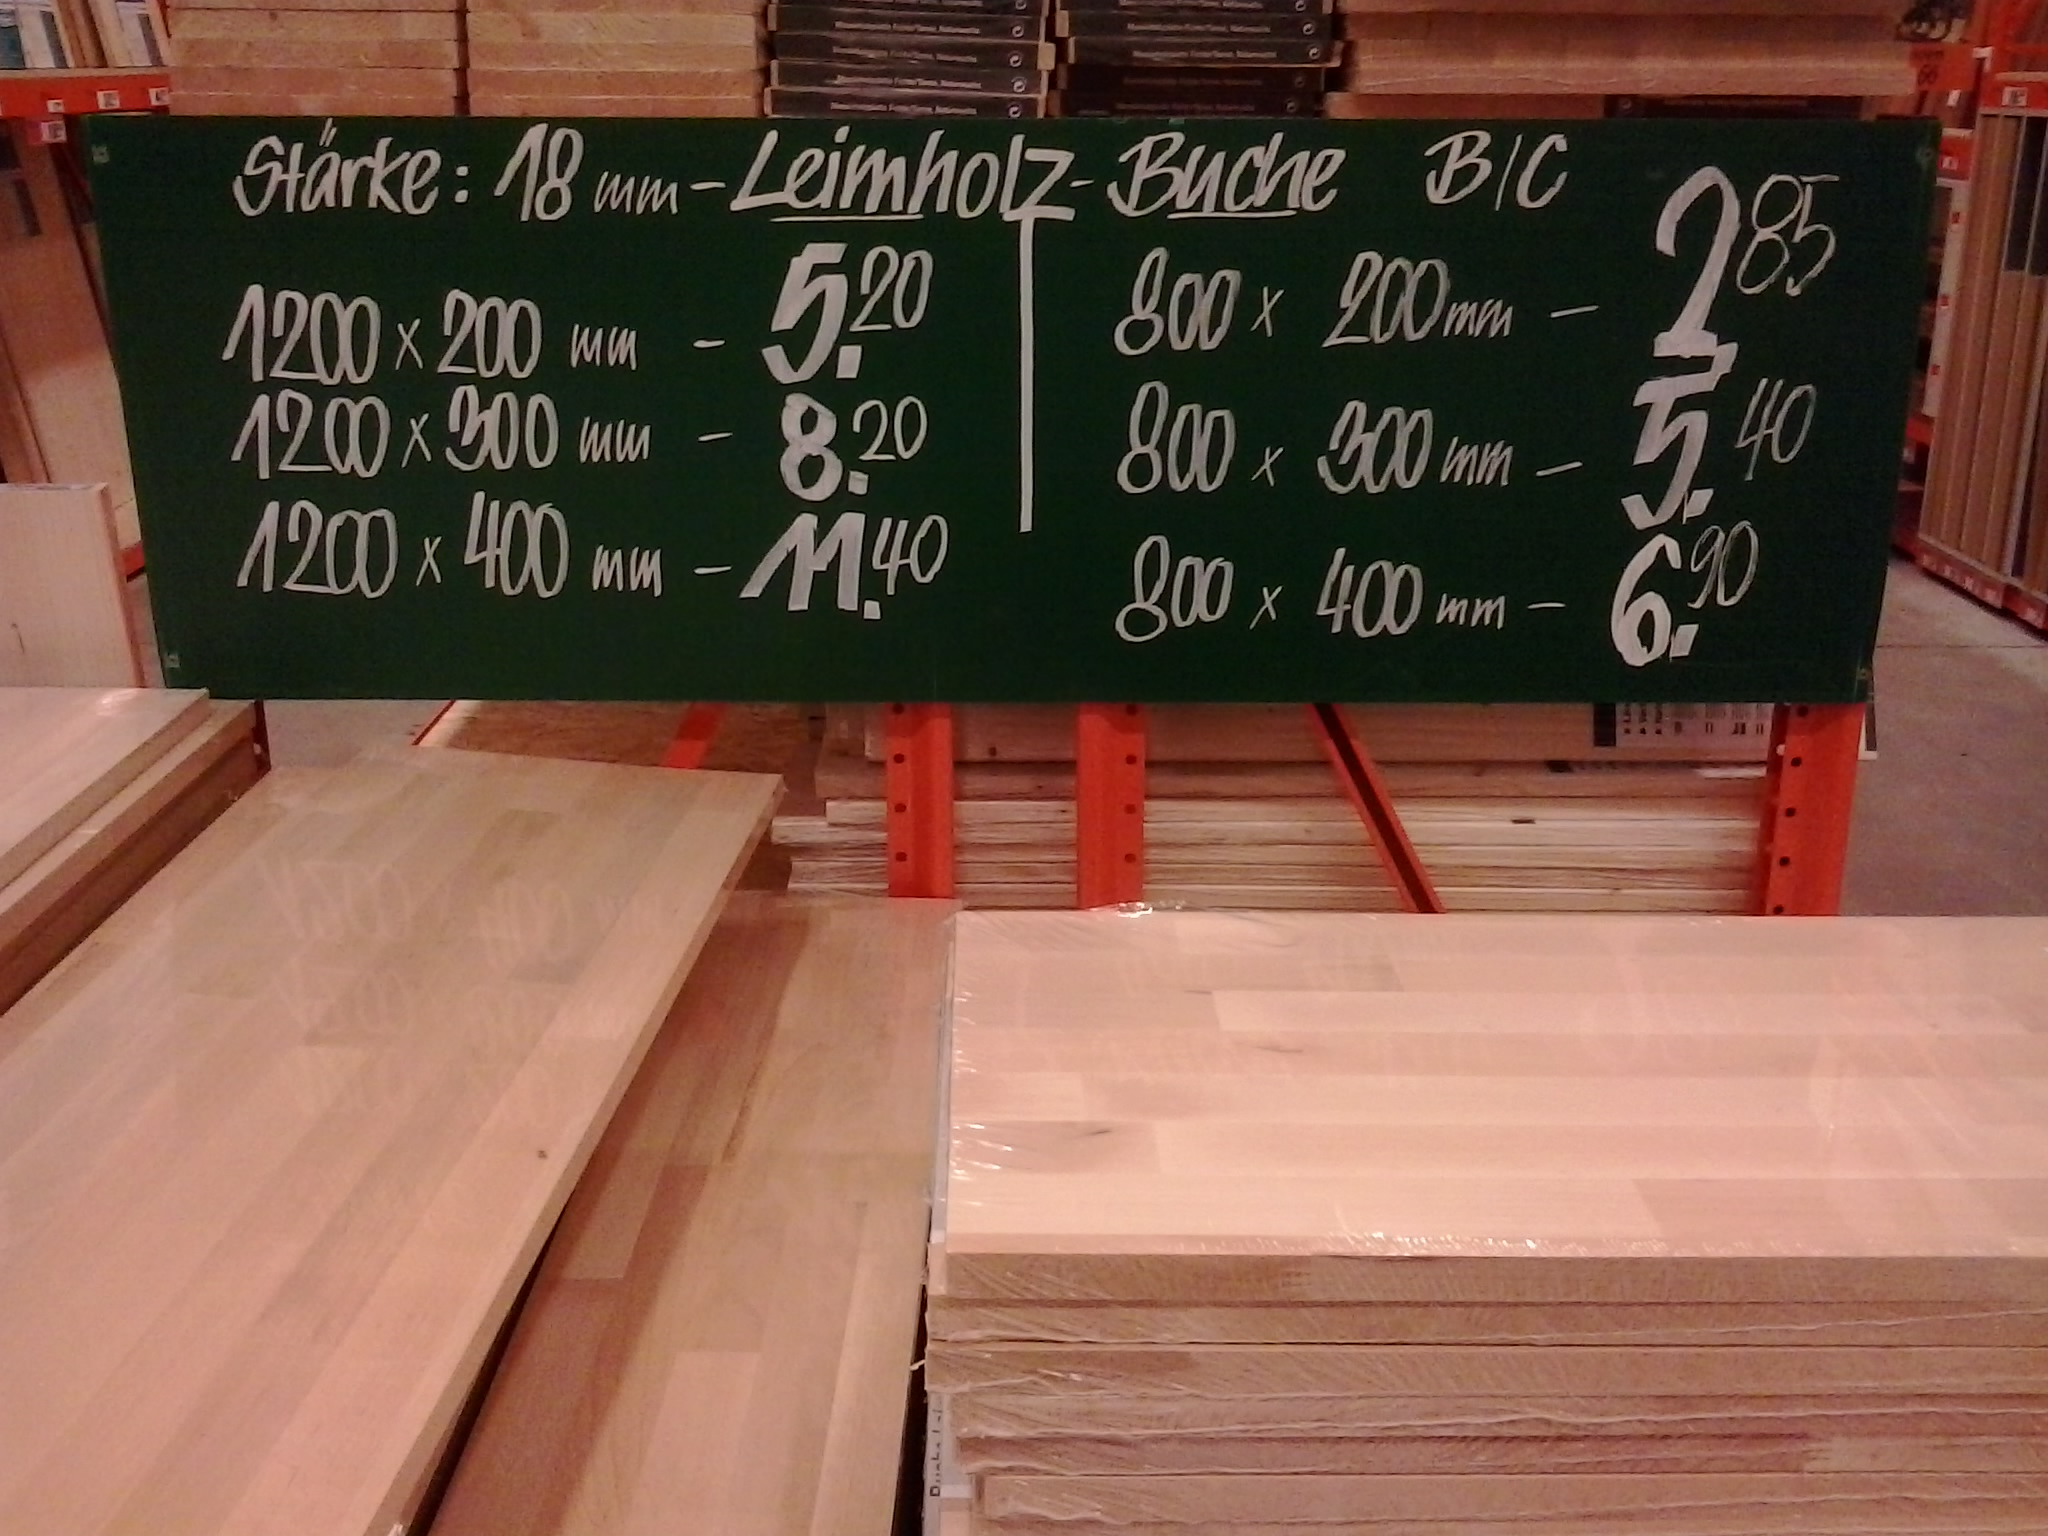 Stärke: 18 mm - Leimholz - Buche B/C
1200 x 200 mm - 5.20
1200 x 300 mm - 8.20
1200 x 400 mm - 11.40
800 x 200 mm - 2 85
800 x 300 mm - 5.40
800 x 400 mm - 6.90